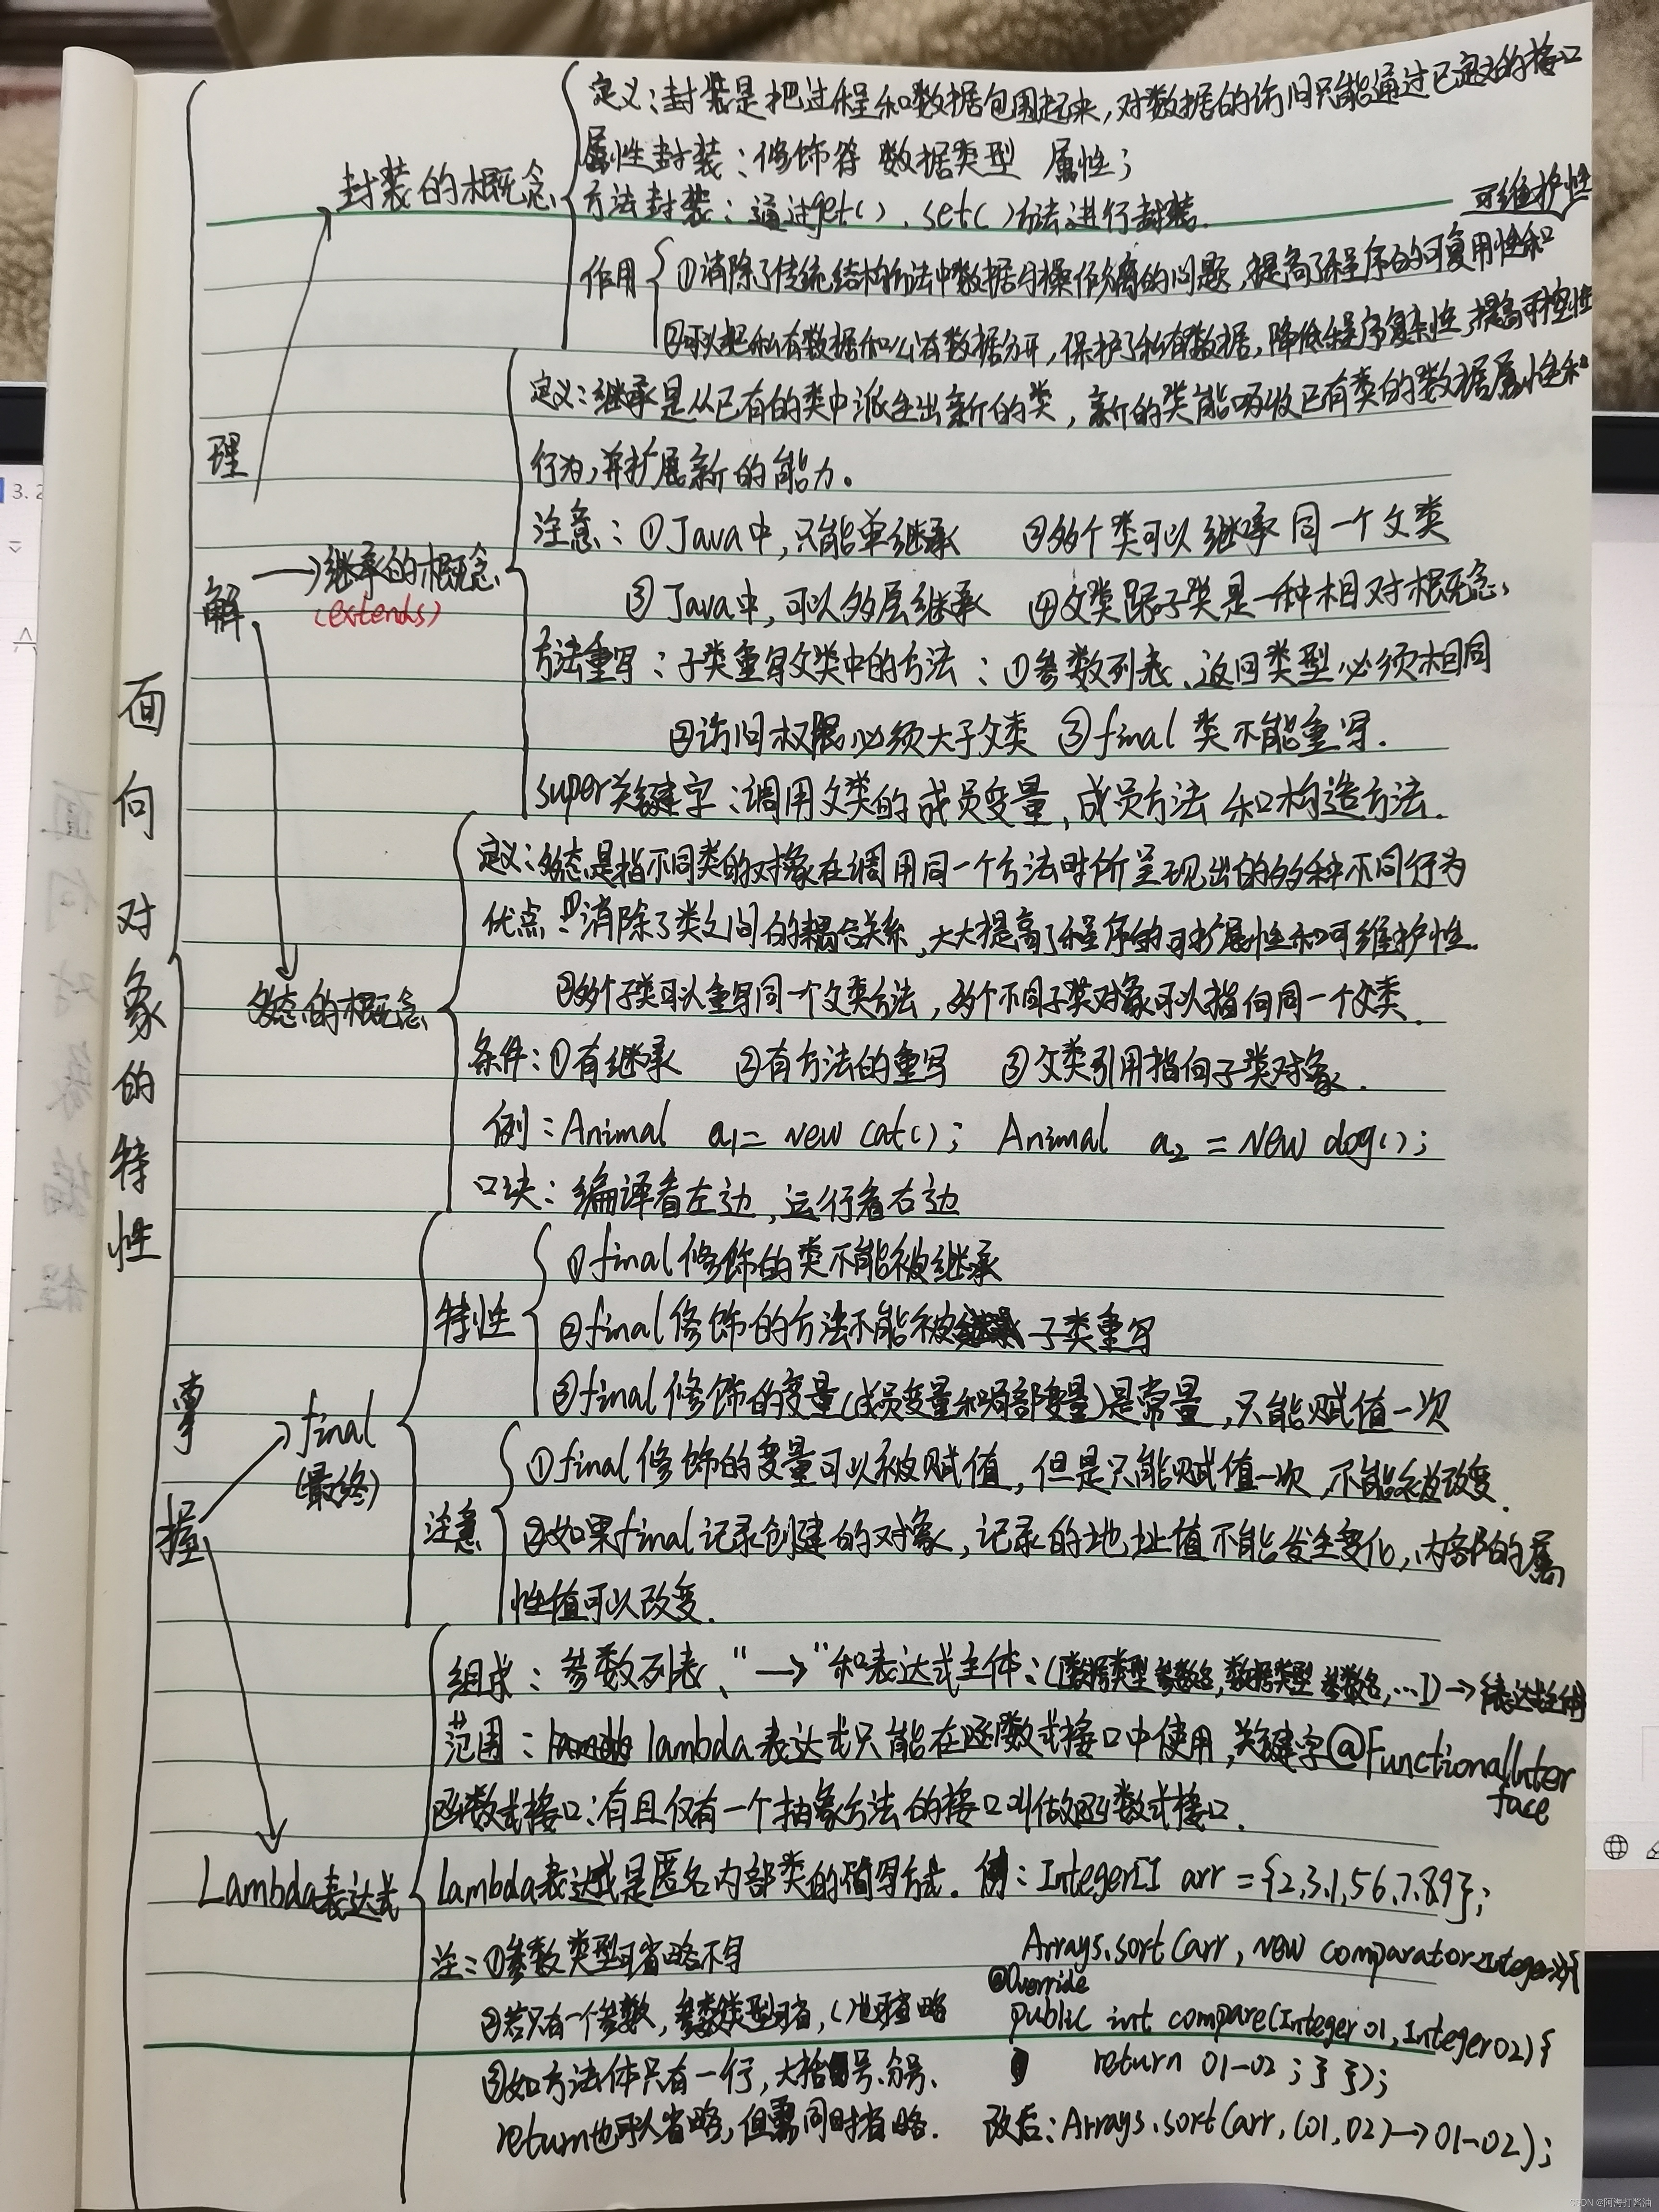 面向对象的特性
理解
封装的概念
定义：封装是把过程和数据包围起来，对数据的访问只能通过已定义的接口
属性封装：修饰符 数据类型 属性；
方法封装：通过get()、set()方法进行封装.
可维护性
作用
①消除了传统结构方法中数据与操作分离的问题，提高了程序的可复用性和
②可以把私有数据和公有数据分开，保护了私有数据，降低程序复杂性，提高可控性
继承的概念
(extends)
定义：继承是从已有的类中派生出新的类，新的类能吸收已有类的数据属性和
行为，并扩展新的能力。
注意：①Java中，只能单继承 ②多个类可以继承同一个父类
③Java中，可以多层继承 ④父类跟子类是一种相对概念
方法重写：子类重写父类中的方法：①参数列表、返回类型必须相同
②访问权限必须大于父类 ③final 类不能重写.
super关键字：调用父类的成员变量、成员方法和构造方法.
多态的概念
定义：多态是指不同类的对象在调用同一个方法时所呈现出的多种不同行为
优点：①消除了类之间的耦合关系，大大提高了程序的可扩展性和可维护性.
②多个子类可以重写同一个父类方法，多个不同子类对象可以指向同一个父类.
条件：①有继承 ②有方法的重写 ③父类引用指向子类对象.
例：Animal a1= new cat(); Animal a2 = new dog();
口诀：编译看左边，运行看右边
掌握
final
(最终)
特性
①final修饰的类不能被继承
②final修饰的方法不能被子类重写
③final修饰的变量(成员变量和局部变量)是常量，只能赋值一次
注意
①final修饰的变量可以被赋值，但是只能赋值一次，不能被改变.
②如果final记录创建的对象，记录的地址值不能发生变化，内部的属
性值可以改变.
Lambda表达式
组成：参数列表、"→"和表达式主体：([数据类型 参数名，数据类型 参数名，…])→{表达式主体}
范围：lambda表达式只能在函数式接口中使用，关键字@FunctionalInter
face
函数式接口：有且仅有一个抽象方法的接口叫做函数式接口.
lambda表达式是匿名内部类的简写方式. 例：Integer[] arr = {2,3,1,5,6,7,8,9};
注：①参数类型可省略不写
Arrays.sort(arr, new comparator<Integer>(){
②若只有一个参数，参数类型可省，()也可省略
@Override
public int compare(Integer o1, Integer o2) {
③如方法体只有一行，大括号、分号、
return o1-o2 ; } });
return也可以省略，但需同时省略.
改后：Arrays.sort(arr, (o1, o2)→o1-o2);
3. 2
CSDN @阿海打酱油